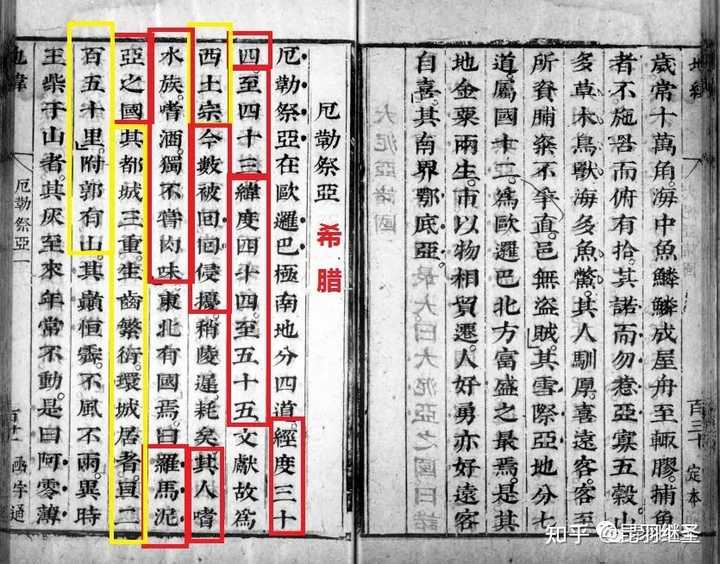 歲常十萬角。海中魚鱗鱗成屋舟至輒膠。捕魚
者不施罟而俯有拾。其諾而勿惹亞寡五穀。山
多草木鳥獸。海多魚鱉。其人馴厚。喜遠客。客至
所資脯粢不爭直。邑無盜賊。其雪際亞地分七
道。屬國十二。為歐邏巴北方富盛之最焉。是其
地金粟兩生。市以物相貿遷。人好勇亦好遠客
自喜。其南界鄂底亞。
地緯
百三十
定本
厄勒祭亞
希腊
厄勒祭亞在歐邏巴極南地分四道。經度三十
四至四十三。緯度四十四至五十五。文獻故為
西土宗。今數被回回侵擾。稍陵遲耗矣。其人嗜
水族。嗜酒。獨不嘗肉味。東北有國焉。曰羅馬泥
亞之國。其都城三重。生齒繁衍。環城居者亘二
百五十里。附郭有山。其巔恒霽。不風不雨。異時
王柴于山者。其灰至來年常不動。是曰阿零薄
地緯
厄勒祭亞一
函宇通
知乎 @昆羽继圣